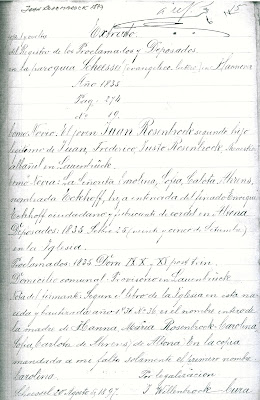 Juan Rosenbrock 1834
Extracto.
del Registro de los Proclamados y Deposados
en la parroquia Scheessel (evangelica, Lutero) en Hannover
Año 1835
Pag: 274
No 19
como Novio: El joven Juan Rosenbrock segundo hijo
lejitimo de Juan, Frederico, Justo Rosenbrock,
albañil en Lauenbrück
como Novia: La Señorita Carolina, Sofia, Carlota Ahrens,
nombrada Eckhoff, hija entenada del finado Enrique
Eckhoff ciudadano y fabricante de cordel en Altona
Deposados: 1835 Julio 25 (veinte y cinco de
en la Iglesia.
Proclamados: 1835 Dom IX X y XI post trin.
Domicilio comunal: Provisorio en Lauenbrück
Nota del firmante: Segun el libro de la Iglesia en esta
y bautizado año 1836 No 36 es el nombre entero de
la madre de Hanna Maria Rosenbrock: Carolina,
Sofia, Carlota de Ahrens, de Altona. En la copia
mandada a mi falta solamente el primer nombre
Carolina.
Por legalizacion
Scheessel 20 Agosto de 1897. J. Willenbrock - Cura